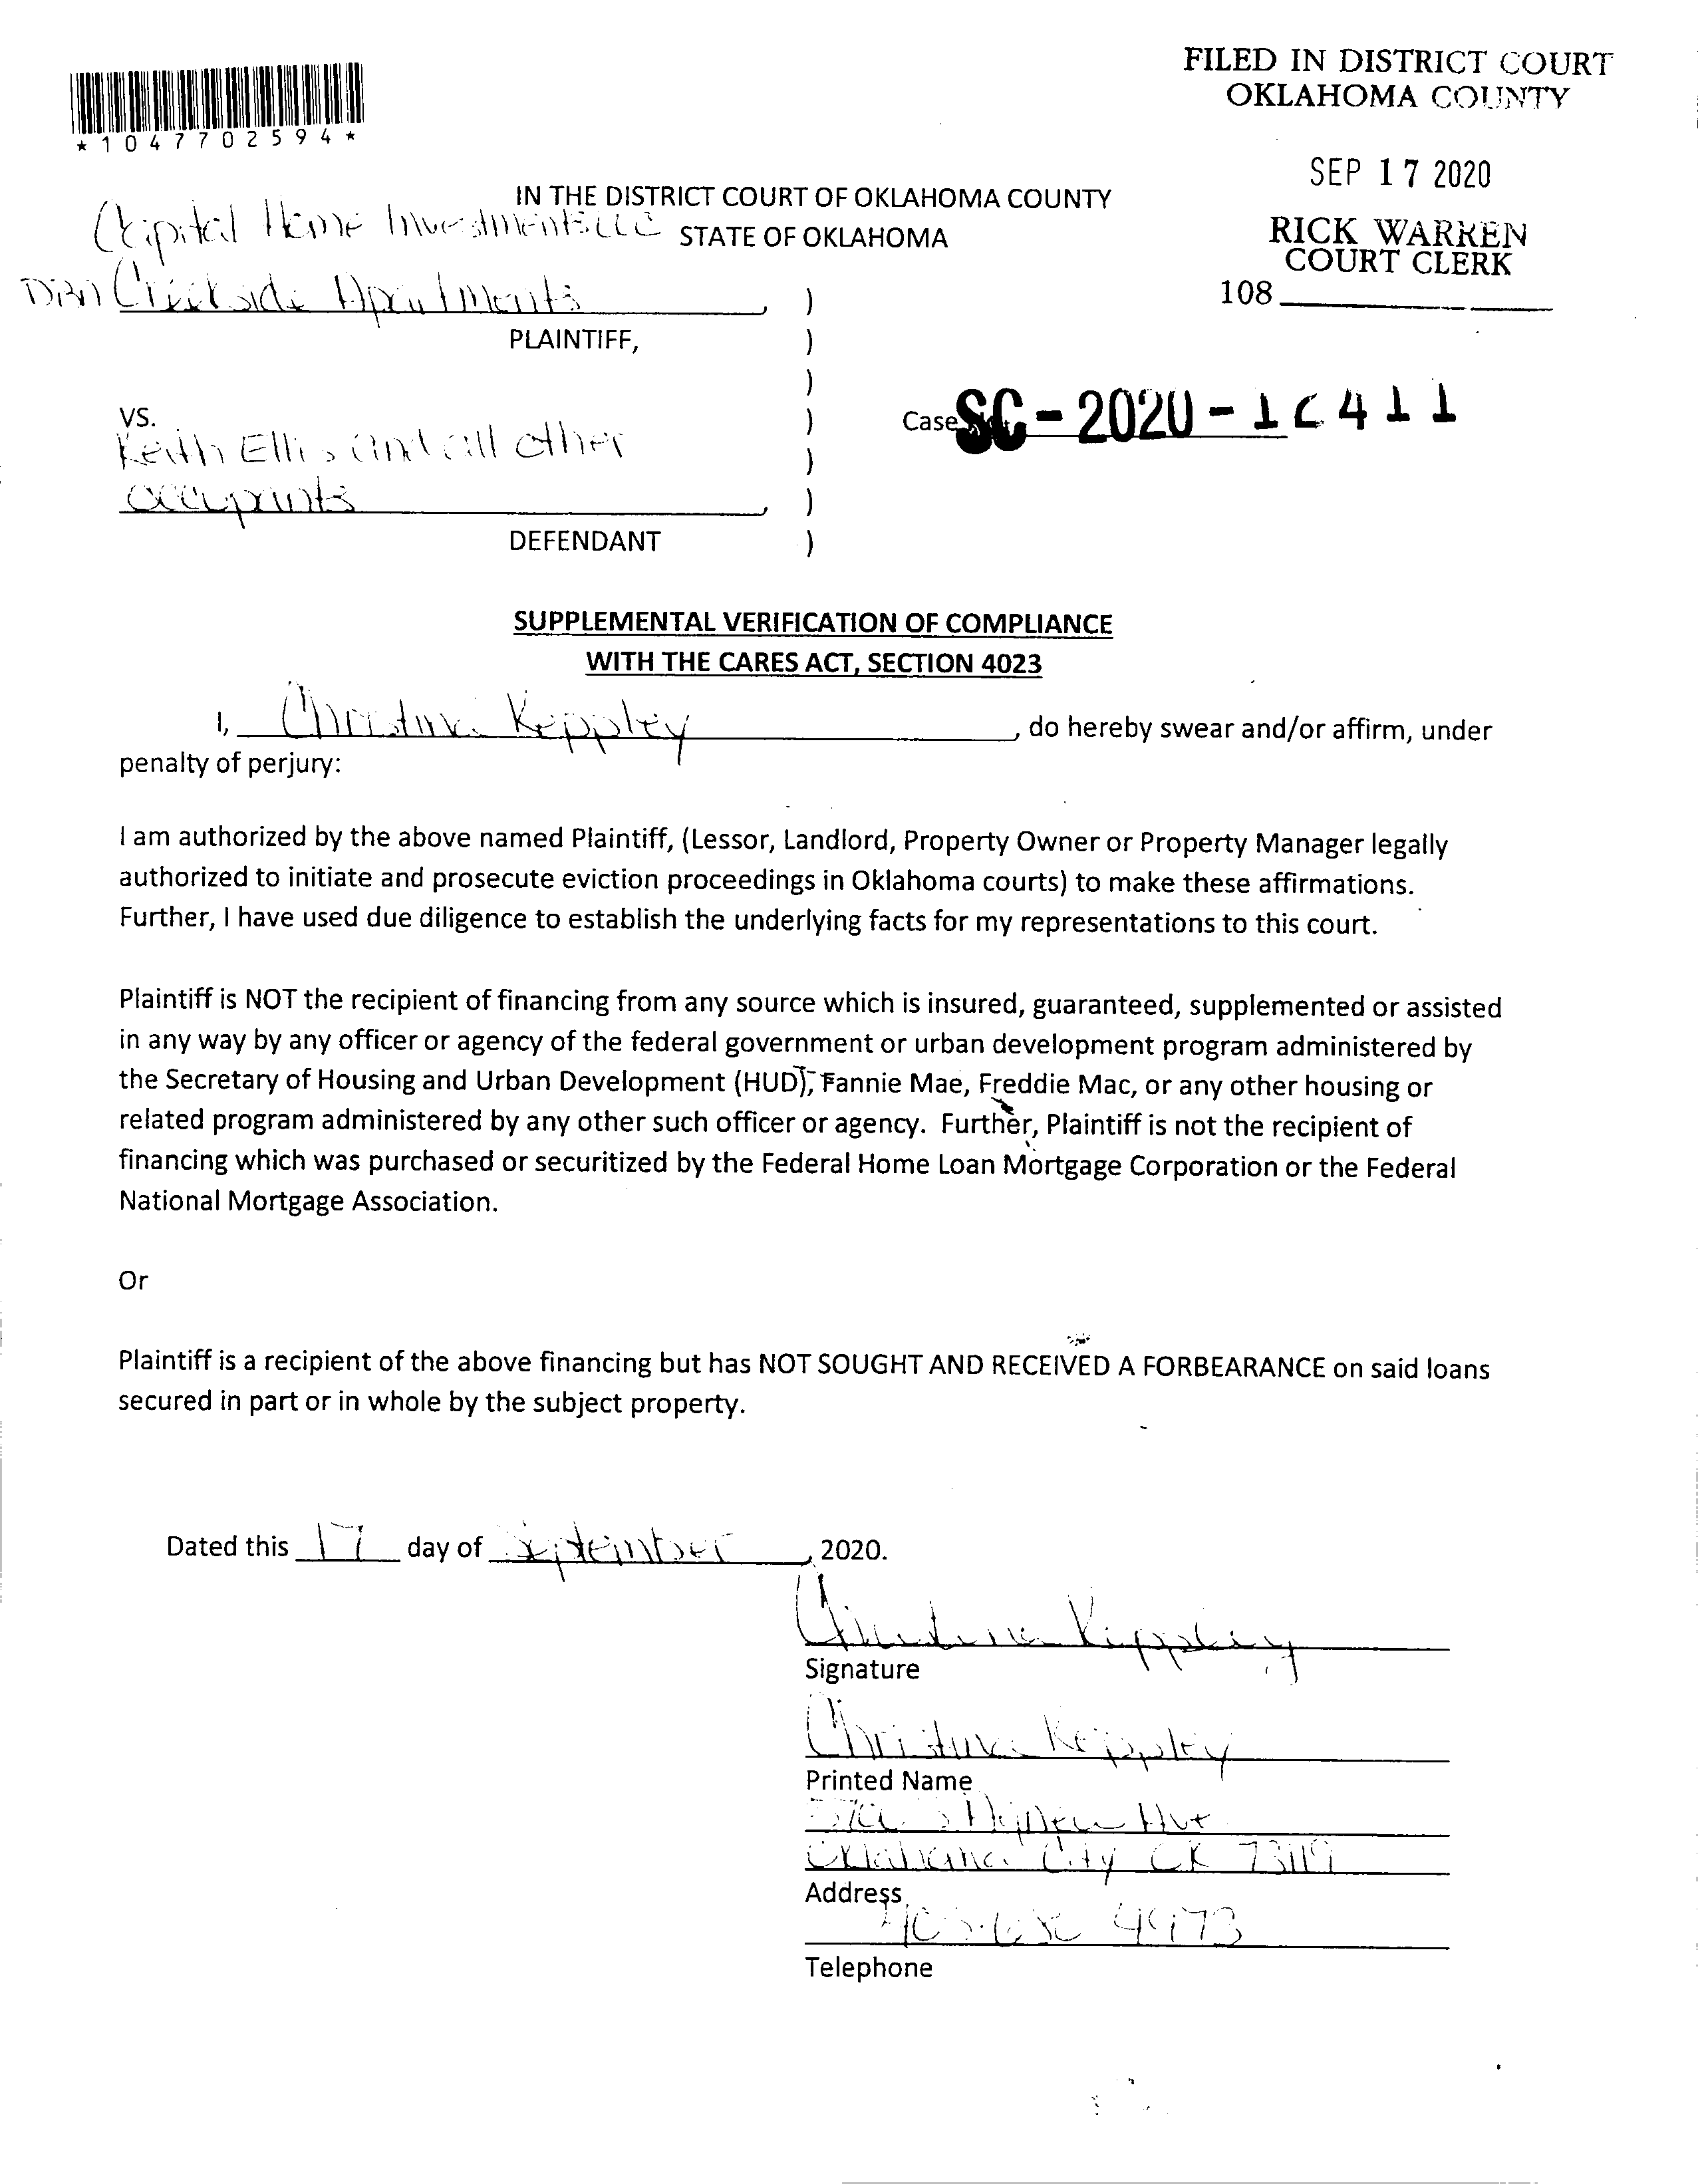 FILED IN DISTRICT COURT
OKLAHOMA COUNTY
*1047702594*
SEP 17 2020
IN THE DISTRICT COURT OF OKLAHOMA COUNTY
Capital Home Investments LLC STATE OF OKLAHOMA
RICK WARREN
COURT CLERK
DBA Creekside Apartments )
108
PLAINTIFF, )
)
VS. )
Case SC-2020-1 411
Keith Ellis and all other )
occupants , )
DEFENDANT )
SUPPLEMENTAL VERIFICATION OF COMPLIANCE
WITH THE CARES ACT, SECTION 4023
I, Christina Keppley , do hereby swear and/or affirm, under
penalty of perjury:
I am authorized by the above named Plaintiff, (Lessor, Landlord, Property Owner or Property Manager legally
authorized to initiate and prosecute eviction proceedings in Oklahoma courts) to make these affirmations.
Further, I have used due diligence to establish the underlying facts for my representations to this court.
Plaintiff is NOT the recipient of financing from any source which is insured, guaranteed, supplemented or assisted
in any way by any officer or agency of the federal government or urban development program administered by
the Secretary of Housing and Urban Development (HUD), Fannie Mae, Freddie Mac, or any other housing or
related program administered by any other such officer or agency. Further, Plaintiff is not the recipient of
financing which was purchased or securitized by the Federal Home Loan Mortgage Corporation or the Federal
National Mortgage Association.
Or
Plaintiff is a recipient of the above financing but has NOT SOUGHT AND RECEIVED A FORBEARANCE on said loans
secured in part or in whole by the subject property.
Dated this 17 day of September , 2020.
Christina Keppley
Signature
Christina Keppley
Printed Name
Ave
Oklahoma City OK 73119
Address
4973
Telephone